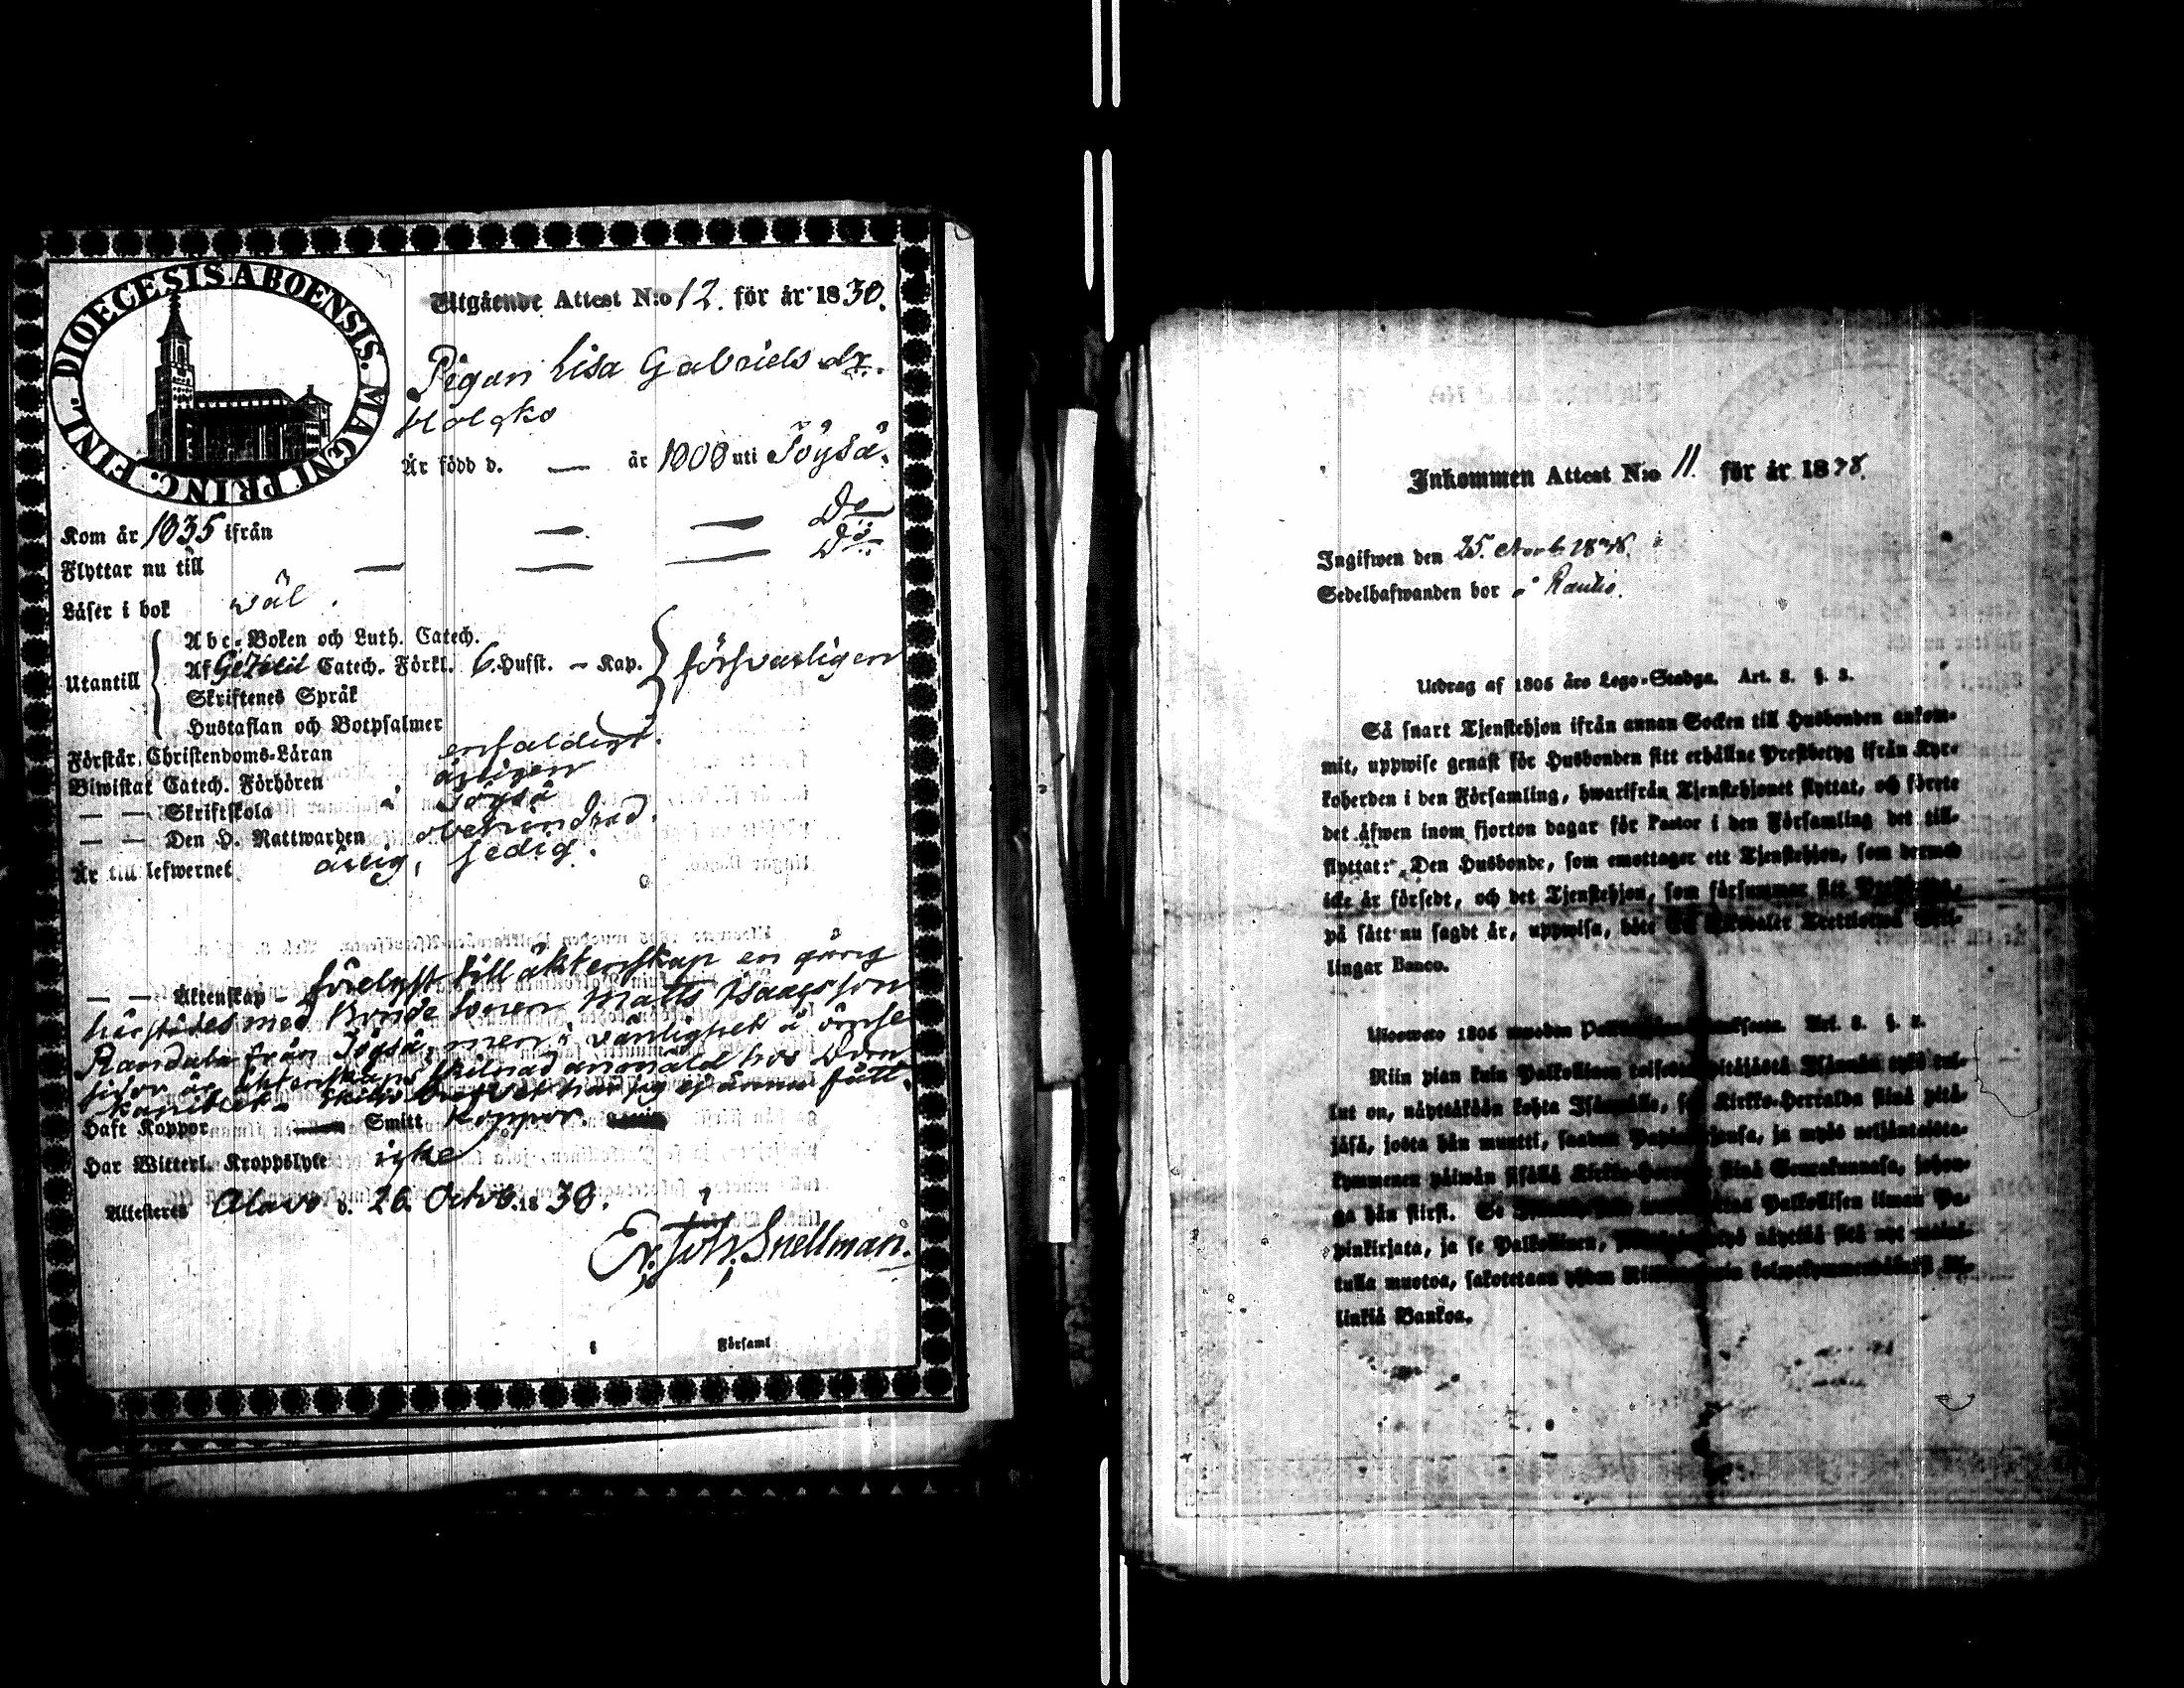 FINL. DIOECESIS ABOENSIS. MAGNI PRINC.
Utgående Attest N:o 12. för år 1838.
Pigan Lisa Gabriels dr.
Holcko
Är född d. — år 1808 uti Töysä.
Kom år 1835 ifrån — — Do
Flyttar nu till — — — Do
Läser i bok wäl.
Utantill
Abc-Boken och Luth. Catech.
Af Gezelii Catech. Förkl. 6. Hufst. – Kap. försvarligen
Skriftenes Språk
Hustaflan och Botpsalmer
Förstår Christendoms-Läran enfaldigt.
Biwistat Catech. Förhören årligen
— — Skriftskola i Töysä
— — Den H. Nattwarden obehindrad.
Är till lefwernet ärlig, sedig.
— — Äktenskap – förelyst till äktenskap en gång
härstädes med Bonde sonen Matts Isaacsson
Randala från Töysä, men i vänlighet å ömse
sidor är äktenskaps skilnad anmäld hos Dom
kapitlet – skiljobrefvet har sig ej ännu fått.
Haft Koppor Smitt Koppor
Har Witterl. Kroppslyte icke
Attesteras Alavo d. 26. Octob. 1838.
Er. Joh. Snellman.
Församl
Inkommen Attest N:o 11. för år 1838.
Ingifwen den 25. 1838.
Sedelhafwanden bor å Rautio.
Utdrag af 1805 års Lego-Stadga. Art. 8. §. 3.
Så snart Tjenstehjon ifrån annan Socken till Husbonden ankom-
mit, uppwise genast för Husbonden sitt erhållne Prestbetyg ifrån Kyr-
koherden i den Församling, hwarifrån Tjenstehjonet flyttat, och förete
det äfwen inom fjorton dagar för Pastor i den Församling det till-
flyttat: Den Husbonde, som emottager ett Tjenstehjon, som dermed
icke är försedt, och det Tjenstehjon, som försummar sitt
på sätt nu sagdt är, uppwisa, böte
lingar Banco.
1805 wuoden Art. 8. §. 3.
Niin pian kuin Palkollinen toisesta pitäjästä Isännän tykö tul-
lut on, näyttäköön kohta Isännälle, Kirkko-Herralda siinä pitä-
jäsä, josta hän muutti, saadun ja myös neljäntoista-
kymmenen päiwän sisällä siinä Seurakunnasa, johon-
ga hän siirsi. Se Palkollisen ilman Pa-
pinkirjata, ja se Palkollinen, näyttää sitä nyt maini-
tulla muotoa, sakotetaan
linkiä Bankoa.